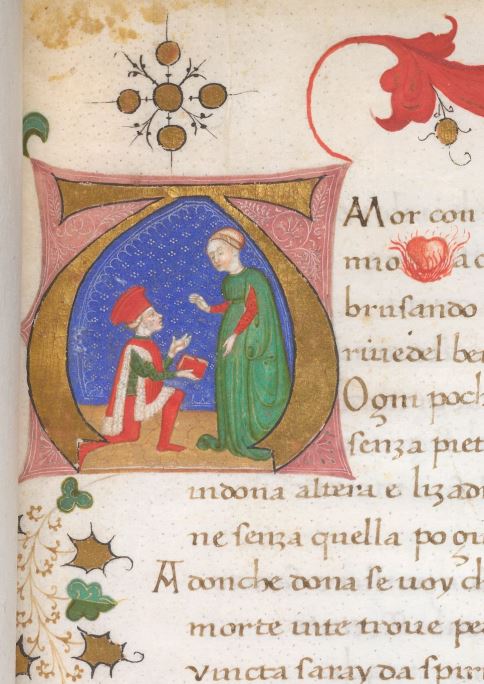 AMor con
mio
brusando
rivedel
Ogni poch
senza piet
indona altera e lizad
ne senza quella po
Adonche dona se uoy ch
morte uite troue
vincta saray da spiri